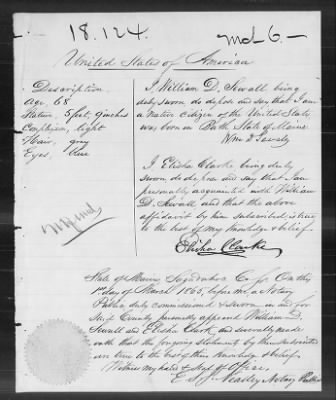 18.124.
Mch 6 —
United States of America
Description
Age, 68
Stature 5 feet, 9 inches
Complexion, light
Hair, gray
Eyes, blue
I William D. Sewall being
duly sworn do depose and say that I am
a native citizen of the United States
was born in Bath State of Maine
Wm D Sewall
I Elisha Clarke being duly
sworn do depose and say that I am
personally acquainted with William
D. Sewall and that the above
affidavit by him subscribed is true
to the best of my knowledge & belief.
Elisha Clarke
State of Maine Sagadahoc Co. ss. On this
day of March 1865, before me a Notary
Public duly commissioned & sworn in and for
said County personally appeared William D.
Sewall and Elisha Clark and severally made
oath that the foregoing statements by them subscribed
are true to the best of their knowledge & belief.
Witness my hand & seal of Office,
Notary Public